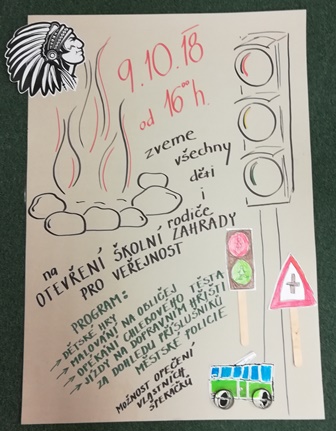 9.10.18
od 16⁰⁰ h.
zveme
všechny
děti
i
rodiče
na
OTEVŘENÍ ŠKOLNÍ ZAHRADY
PRO VEŘEJNOST
PROGRAM:
→ DĚTSKÉ HRY
→ MALOVÁNÍ NA OBLIČEJ
→ OPÉKÁNÍ CHLEBOVÉHO TĚSTA
→ JÍZDY NA DOPRAVNÍM HŘIŠTI
ZA DOHLEDU PŘÍSLUŠNÍKŮ
MĚSTSKÉ POLICIE
MOŽNOST OPEČENÍ
VLASTNÍCH
ŠPEKÁČKŮ